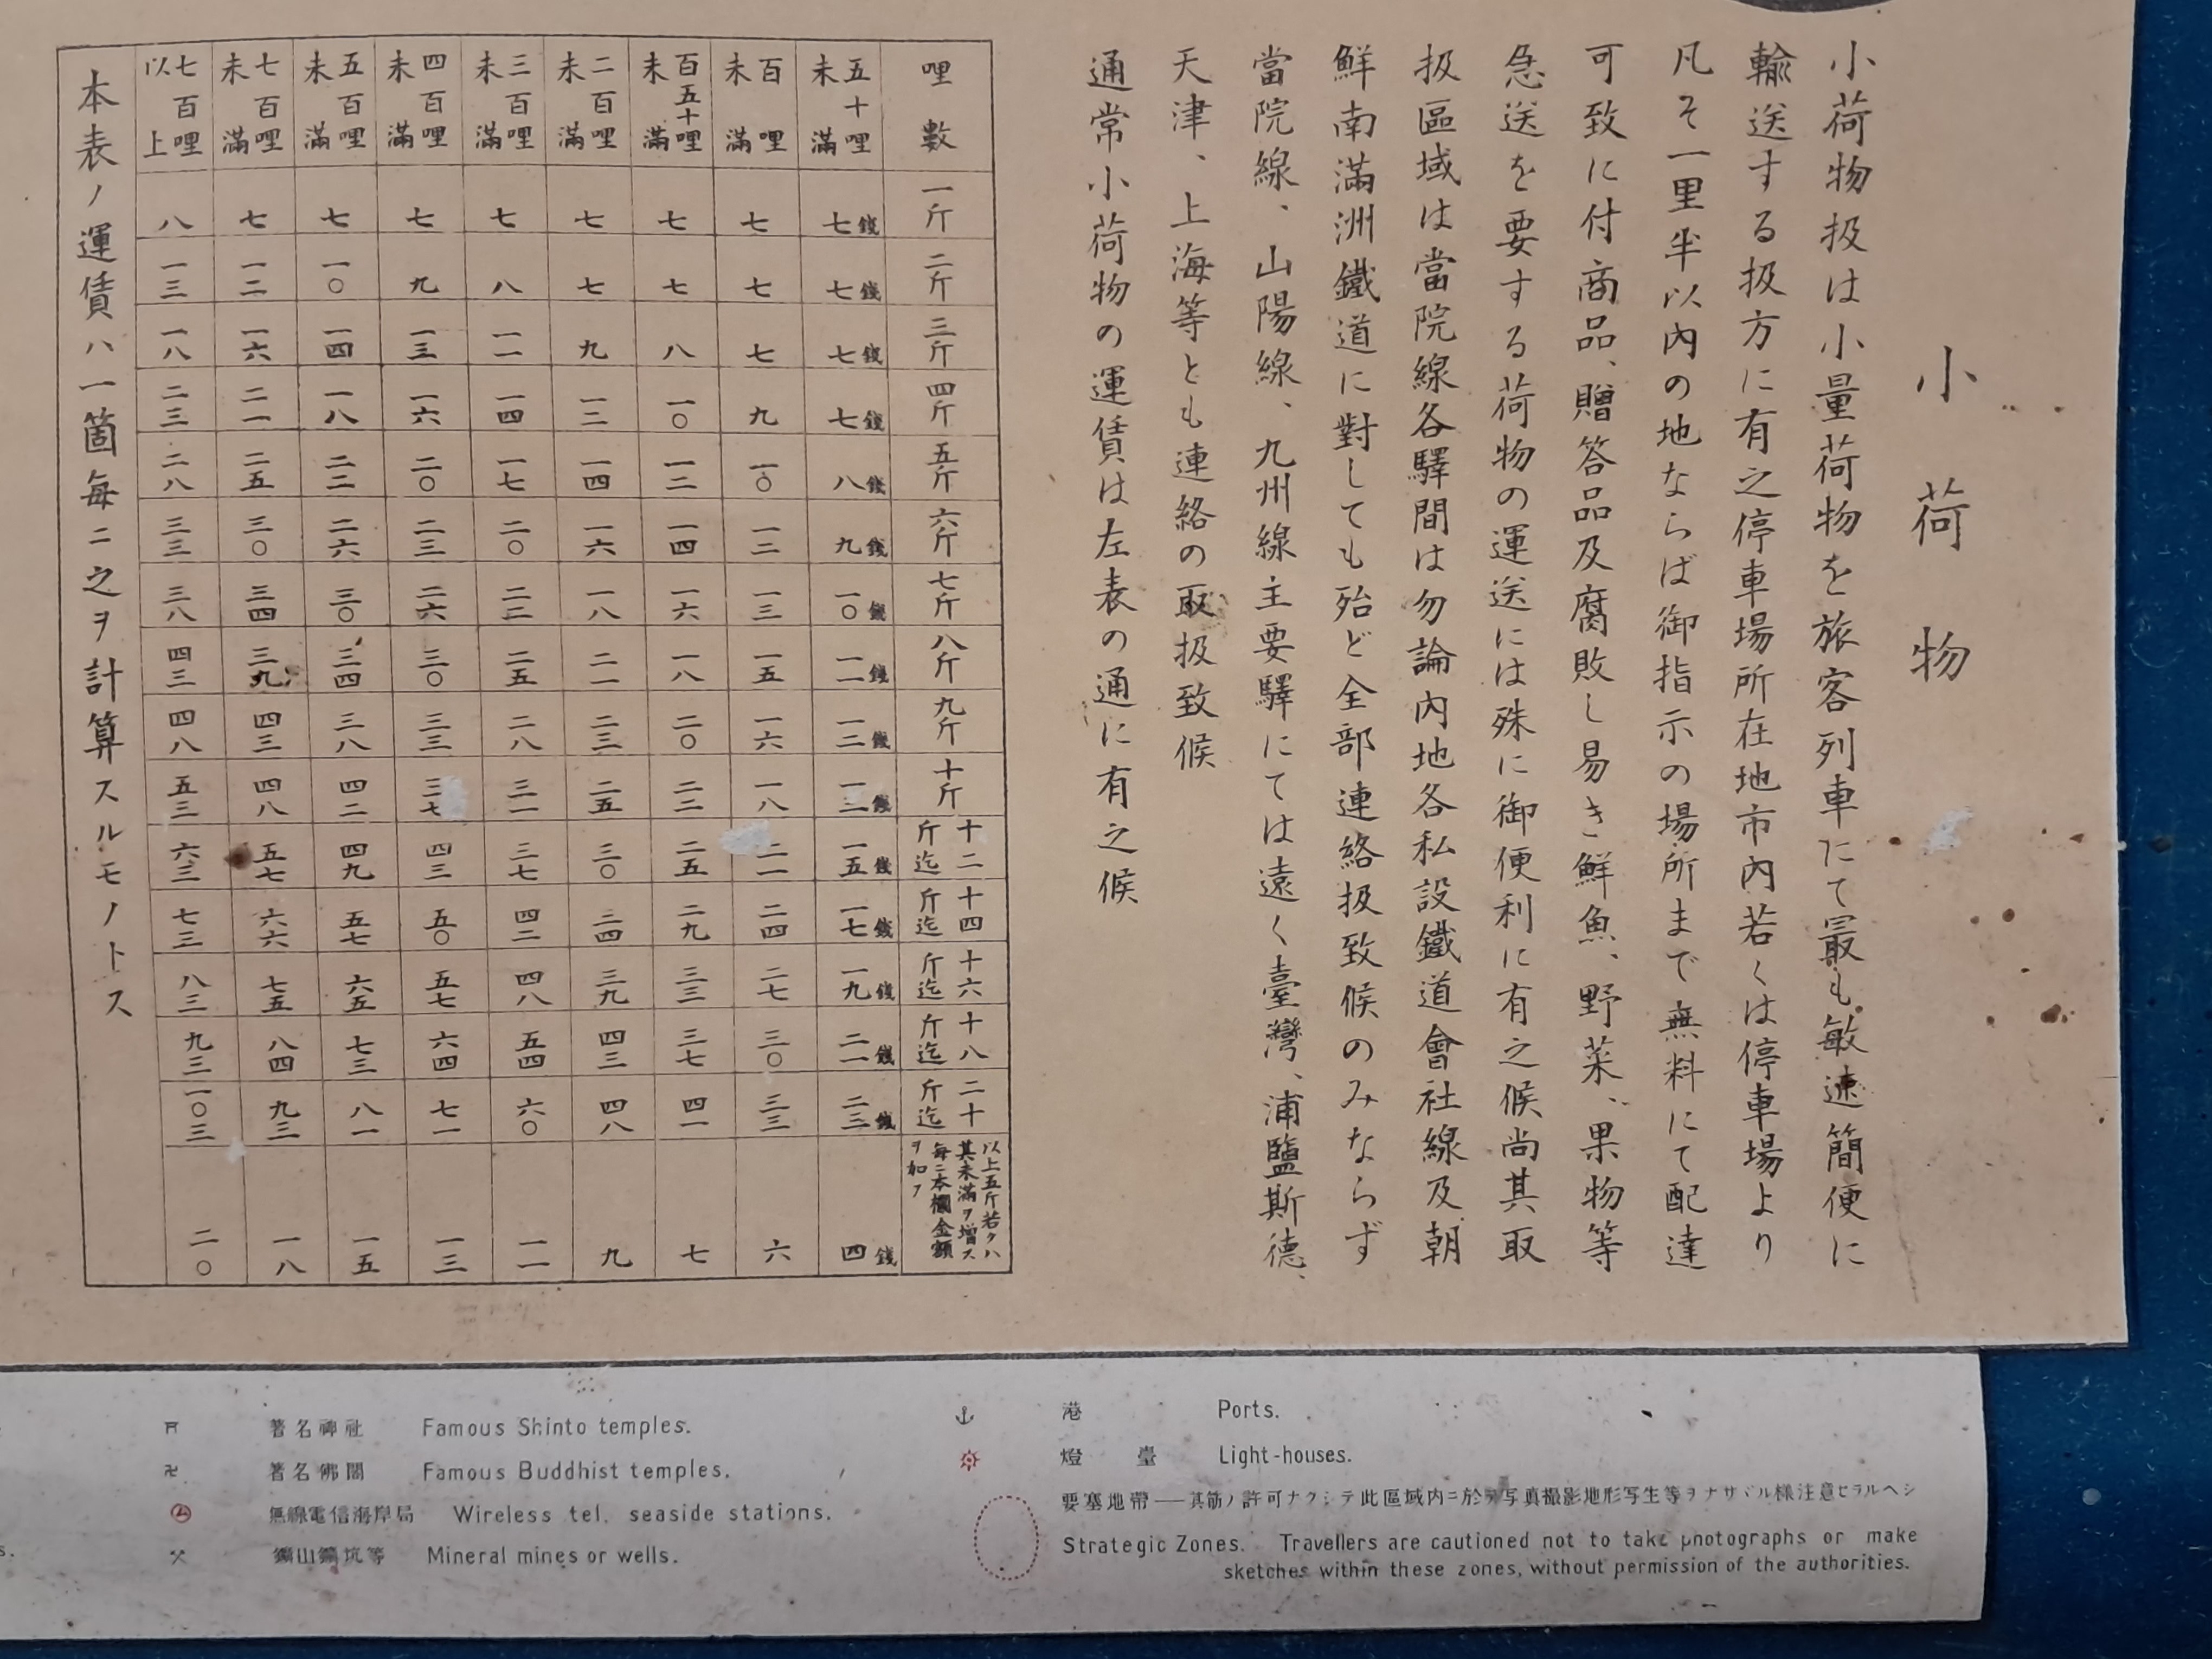 小荷物
小荷物扱は小量荷物を旅客列車にて最も敏速簡便に
輸送する扱方に有之停車場所在地市內若くは停車場より
凡そ一里半以內の地ならば御指示の場所まで無料にて配達
可致に付商品、贈答品及腐敗し易き鮮魚、野菜、果物等
急送を要する荷物の運送には殊に御便利に有之候尚其取
扱區域は當院線各驛間は勿論內地各私設鐵道會社線及朝
鮮南滿洲鐵道に對しても殆ど全部連絡扱致候のみならず
當院線、山陽線、九州線主要驛にては遠く臺灣、浦鹽斯德、
天津、上海等とも連絡の取扱致候
通常小荷物の運賃は左表の通に有之候
哩數 一斤 二斤 三斤 四斤 五斤 六斤 七斤 八斤 九斤 十斤 十二斤迄 十四斤迄 十六斤迄 十八斤迄 二十斤迄 以上五斤若クハ其未滿ヲ增ス每ニ本欄金額ヲ加フ
五十哩未滿 七錢 七錢 七錢 七錢 八錢 九錢 一〇錢 一一錢 一二錢 一三錢 一五錢 一七錢 一九錢 二一錢 二三錢 四錢
百哩未滿 七 七 七 九 一〇 一二 一三 一五 一六 一八 二一 二四 二七 三〇 三三 六
百五十哩未滿 七 七 八 一〇 一二 一四 一六 一八 二〇 二二 二五 二九 三三 三七 四一 七
二百哩未滿 七 七 九 一二 一四 一六 一八 二一 二三 二五 三〇 三四 三九 四三 四八 九
三百哩未滿 七 八 一一 一四 一七 二〇 二二 二五 二八 三一 三七 四二 四八 五四 六〇 一一
四百哩未滿 七 九 一三 一六 二〇 二三 二六 三〇 三三 三七 四三 五〇 五七 六四 七一 一三
五百哩未滿 七 一〇 一四 一八 二二 二六 三〇 三四 三八 四二 四九 五七 六五 七三 八一 一五
七百哩未滿 七 一二 一六 二一 二五 三〇 三四 三九 四三 四八 五七 六六 七五 八四 九三 一八
七百哩以上 八 一三 一八 二三 二八 三三 三八 四三 四八 五三 六三 七三 八三 九三 一〇三 二〇
本表ノ運賃ハ一箇每ニ之ヲ計算スルモノトス
著名神社 Famous Shinto temples.
著名佛閣 Famous Buddhist temples.
無線電信海岸局 Wireless tel. seaside stations.
鑛山鑛坑等 Mineral mines or wells.
港 Ports.
燈臺 Light-houses.
要塞地帶——其筋ノ許可ナクシテ此區域内ニ於テ写真撮影地形写生等ヲナサヾル様注意セラルヘシ
Strategic Zones. Travellers are cautioned not to take photographs or make
sketches within these zones, without permission of the authorities.